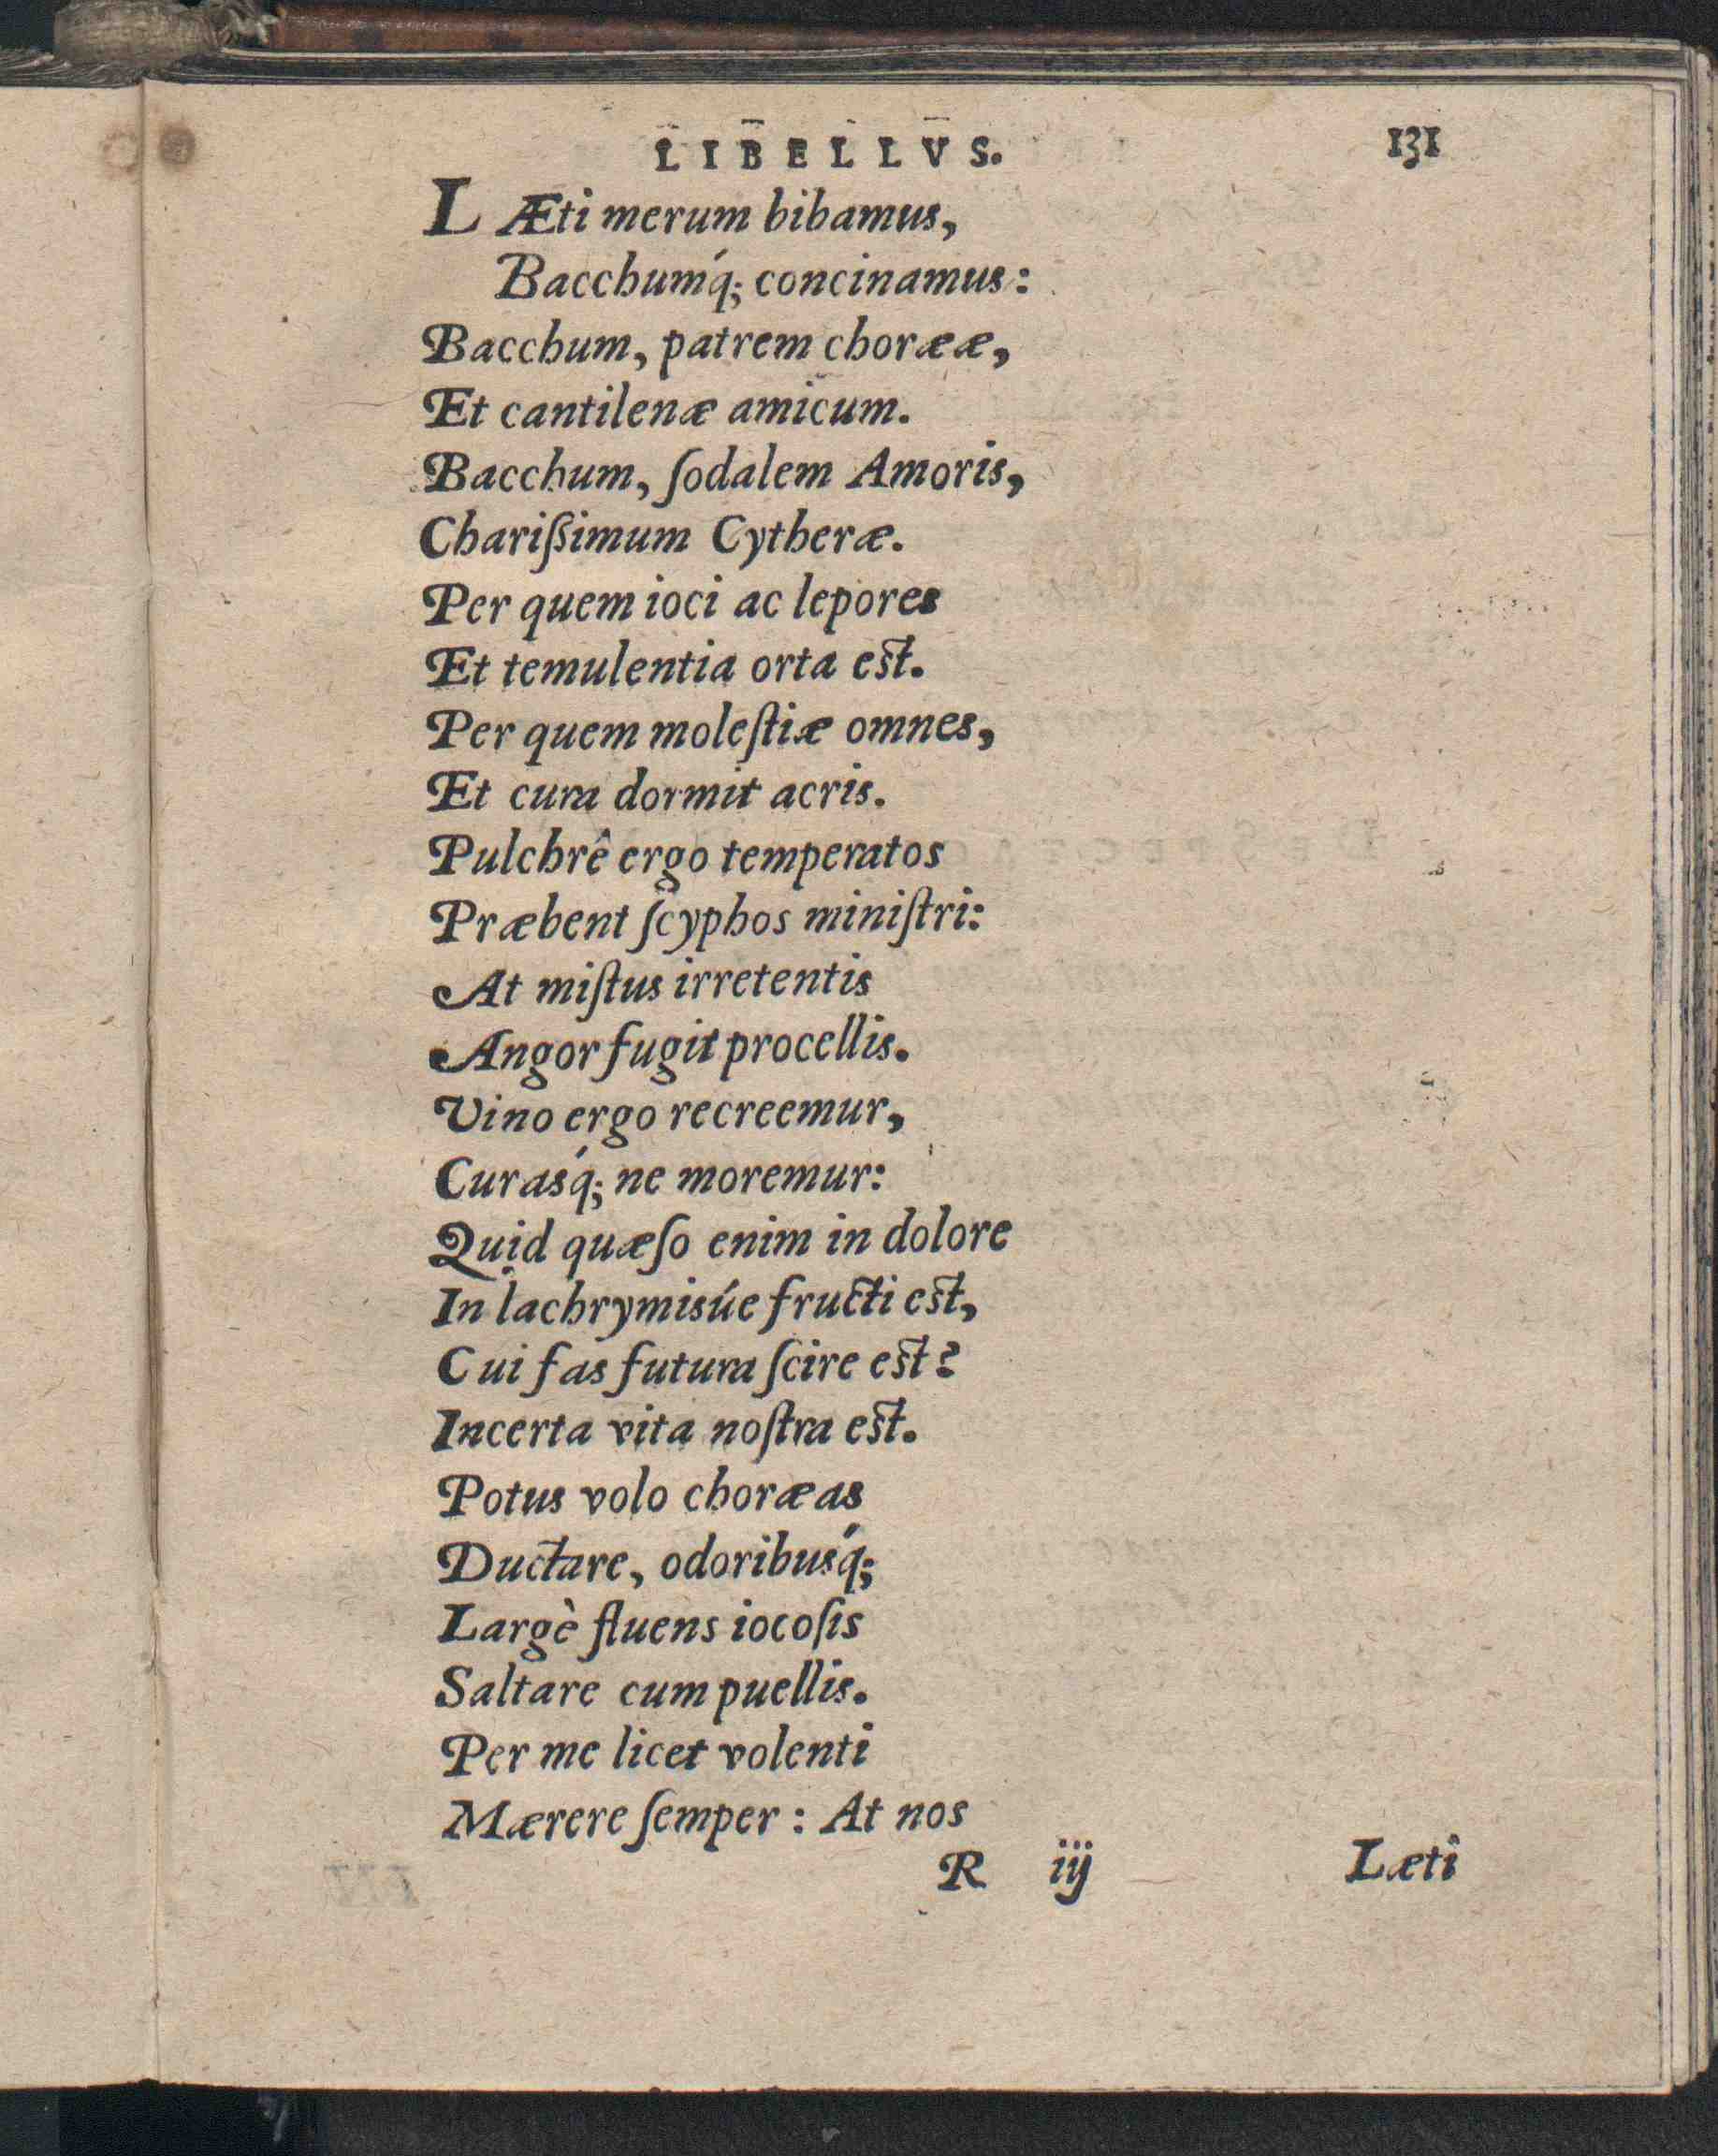 LIBELLVS. 131
LÆti merum bibamus,
Bacchumq́; concinamus:
Bacchum, patrem choræ æ,
Et cantilenæ amicum.
Bacchum, ſodalem Amoris,
Charißimum Cytheræ.
Per quem ioci ac lepores
Et temulentia orta est.
Per quem moleſtiæ omnes,
Et cura dormit acris.
Pulchrê ergo temperatos
Præbent ſcyphos miniſtri:
At miſtus irretentis
Angor fugit procellis.
Vino ergo recreemur,
Curasq́; ne moremur:
Quid quæſo enim in dolore
In lachrymisúe fructi est,
Cui fas futura ſcire est?
Incerta vita noſtra est.
Potus volo choræas
Ductare, odoribusq́;
Largè fluens iocoſis
Saltare cum puellis.
Per me licet volenti
Mærere ſemper: At nos
R iij Læti